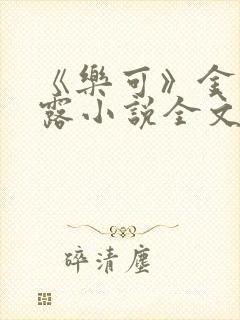 《樂可》金
露小說全文
碎清塵